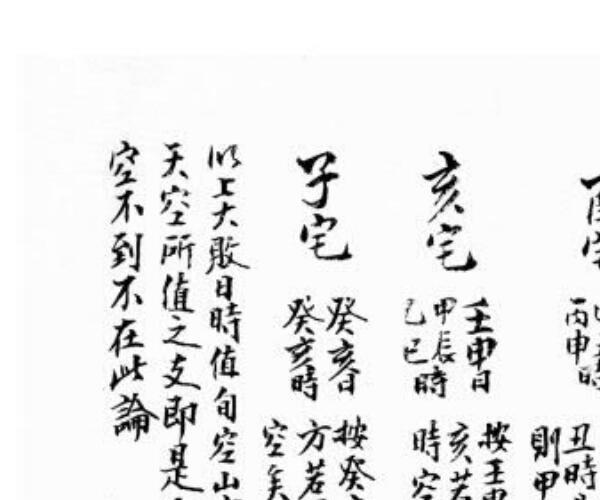 丙申時
丑時
則甲
亥宅
壬申日
甲辰
己巳時
按壬申
亥若
時空
子宅
癸亥日
癸亥時
按癸
方若
空矣
以上大敗日時值旬空山
天空所值之支即是
空不到不在此論